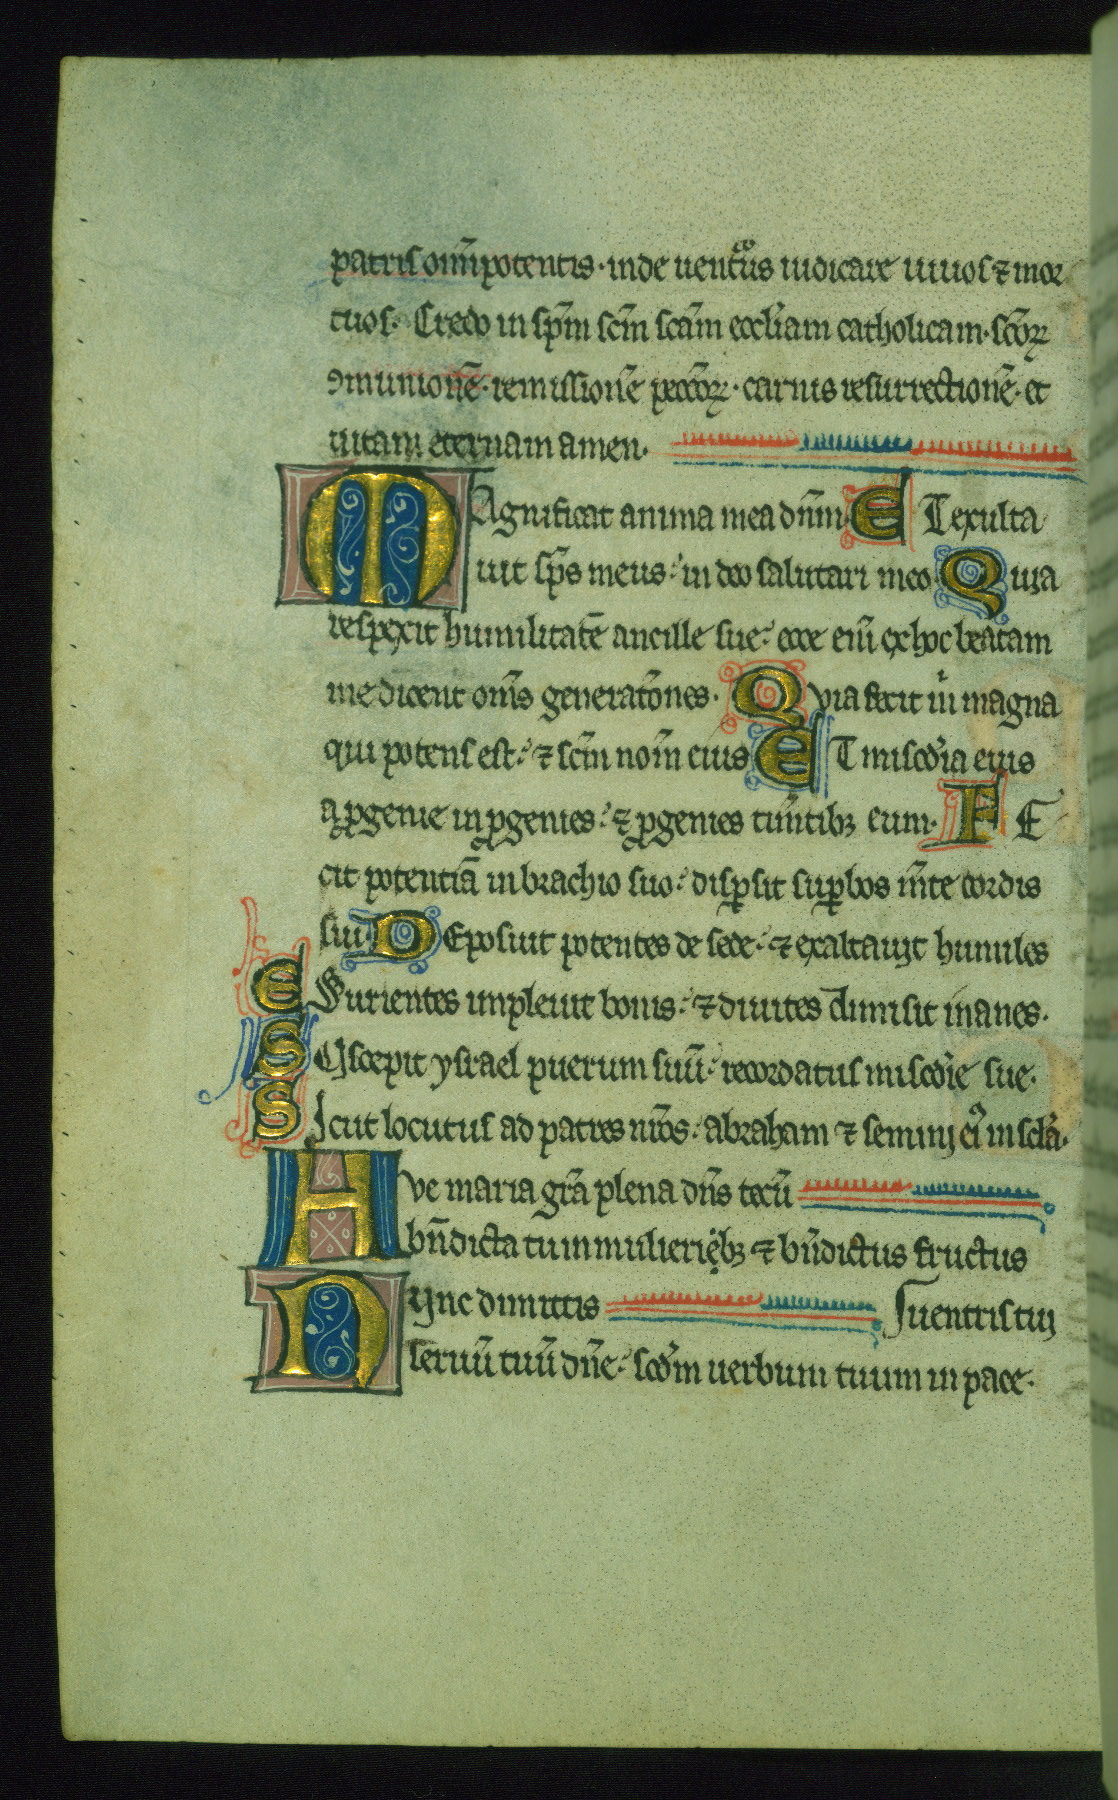 patris om̅ipotentis · inde uentu᷒rus iudicare uiuos ⁊ mor
tuos · Credo in sp̅m sc̅m sc̅am eccl̅iam catholicam · sc̅oꝝ
ꝯmunione̅ · remissione̅ pecc̅oꝝ · carnis resurrectione̅ · et
uitam eternam amen ·
Magnificat anima mea dn̅m · ET exulta
uit sp̅s meus : in deo salutari meo Quia
respexit humilitate̅ ancille sue : ecce eni̅ ex hoc beatam
me dicent om̅s generat̅ones · Quia fecit m̍ magna
qui potens est : ⁊ sc̅m nom̅ eius ET mis̅cdia eius
a ꝓgenie in ꝓgenies : ⁊ ꝓgenies tim̅tibꝫ eum · FE
cit potentia̅ in brachio suo : disꝑsit suꝑbos m̅te cordis
sui · DEposuit potentes de sede : ⁊ exaltauit humiles
ESurientes impleuit bonis : ⁊ diuites dimisit inanes ·
SUscepit ysrael puerum suu̅ : recordatus mis̅cdie sue ·
SIcut locutus ad patres nr̅os : abraham ⁊ semini ei᷒ in sc̅la ·
AVe maria gr̅a plena dn̅s tecu̅
bn̅dicta tu in mulieribꝫ ⁊ bn̅dictus fructus
NUnc dimittis uentris tui
seruu̅ tuu̅ dn̅e : scd̅m uerbum tuum in pace ·